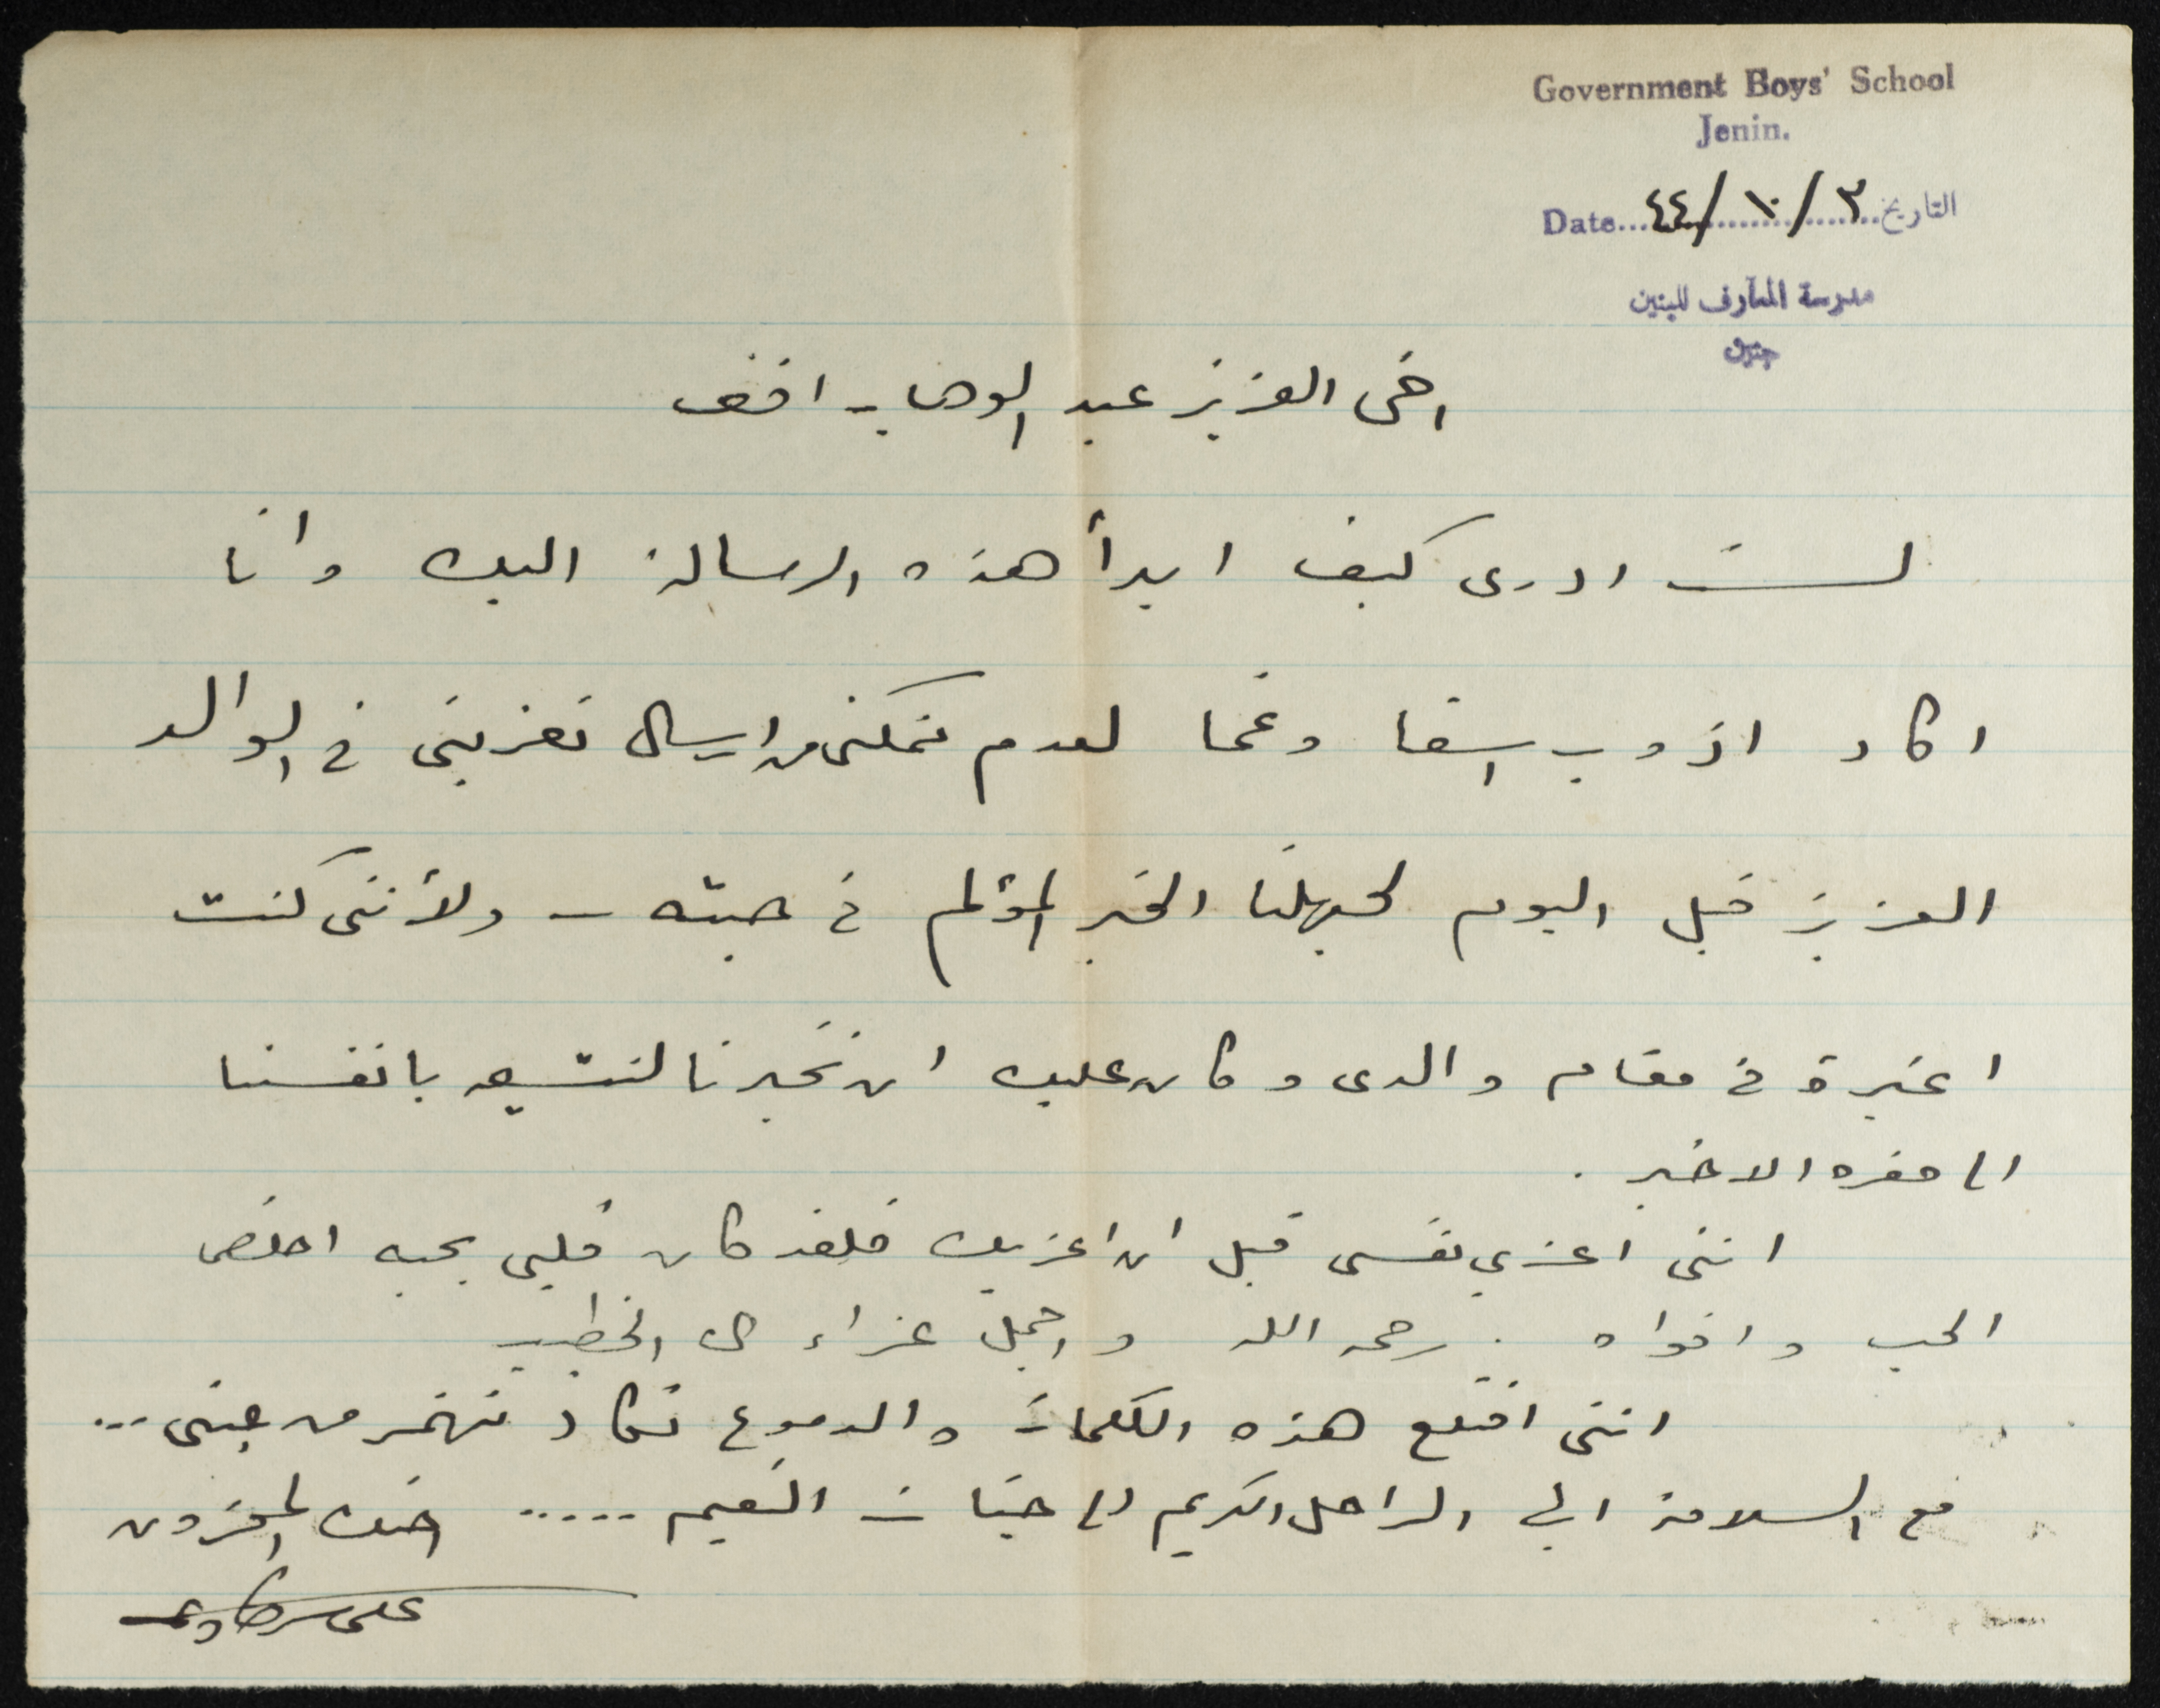 Government Boys' School
Jenin.
التاريخ ٣ / ١٠ / ٤٤ Date
مدرسة المعارف للبنين
جنين
اخي العزيز عبد الوهاب افندي
لست ادري كيف ابدأ هذه الرسالة اليك وانا
اكاد اذوب اسفا وغما لعدم تمكني من ارسال تعزيتي في الوالد
العزيز قبل اليوم لجهلنا الخبر المؤلم في حينه - ولأنني كنت
اعتبره في مقام والدي وكان عليك ان تخبرنا لنشيعه بانفسنا
الى مقره الاخير .
انني اعزي نفسي قبل ان اعزيك فلقد كان قلبي يحبه اخلص
الحب واقواه . رحمه الله واجمل عزاء آل الخطيب
انني اقتلع هذه الكلمات والدموع تكاد تنهمر من عيني ...
مع السلامة ايها الراحل الكريم الى جنات النعيم ..... اخوك المحزون
علي سرطاوي